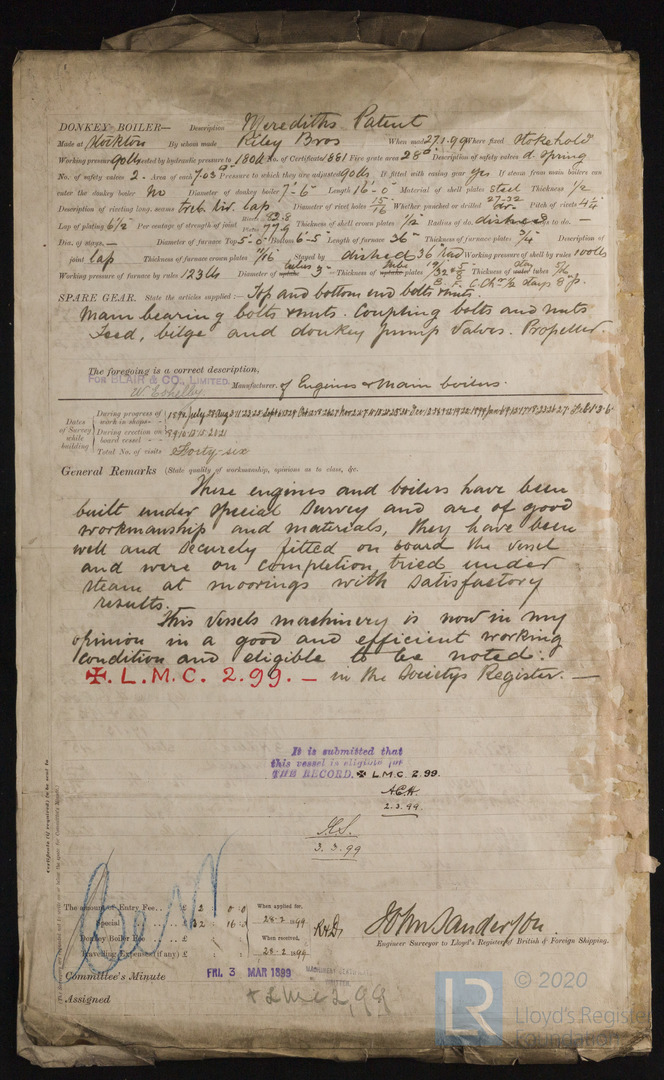 DONKEY BOILER— Description Merediths Patent
Made at Stockton By whom made Riley Bros When made 27.1.99 Where fixed Stokehold
Working pressure 90lbs tested by hydraulic pressure to 180lb No. of Certificate 881 Fire grate area 28 Description of safety valves d. spring
No. of safety valves 2 - Area of each 7.03 Pressure to which they are adjusted 90lbs If fitted with easing gear yes If steam from main boilers can
enter the donkey boiler No Diameter of donkey boiler 7'-6" Length 16'-0" Material of shell plates Steel Thickness 1/2
Description of riveting long. seams treb. riv. lap Diameter of rivet holes 15/16 Whether punched or drilled Pitch of rivets 4 1/4
Lap of plating 6 1/2 Per centage of strength of joint Rivets 93.8 Plates 77.9 Thickness of shell crown plates 1/2 Radius of do. dished to do. —
Dia. of stays. — Diameter of furnace Top 5'-0" Bottom 6'-5" Length of furnace 36" Thickness of furnace plates 3/4 Description of
joint lap Thickness of furnace crown plates Stayed by dished 36 rad Working pressure of shell by rules 100lbs
Working pressure of furnace by rules 123lbs Diameter of tubes 3" Thickness of plates Thickness of tubes
SPARE GEAR. State the articles supplied:— Top and bottom end bolts & nuts.
Main bearing bolts & nuts. Coupling bolts and nuts
Feed, bilge and donkey pump valves. Propeller.
The foregoing is a correct description,
FOR BLAIR & CO., LIMITED Manufacturer. of Engines & Main boilers.
Dates of Survey while building
During progress of work in shops - -
During erection on board vessel - - -
Total No. of visits Forty-six
General Remarks (State quality of workmanship, opinions as to class, &c.
These engines and boilers have been
built under special survey and are of good
workmanship and materials, they have been
well and securely fitted on board the vessel
and were on completion, tried under
steam at moorings with satisfactory
results.
This vessels machinery is now in my
opinion in a good and efficient working
condition and eligible to be noted:
✠. L.M.C. 2.99. — in the Societys Register. —
It is submitted that
this vessel is eligible for
THE RECORD. ✠ L.M.C. 2.99.
2.3.99
3.3.99
Certificate (if required) to be sent to
The amount of Entry Fee.. £ 2 : 0 : 0 When applied for,
Special .. £ 32 : 16 : 28-2-1899
Donkey Boiler Fee .. £ : : When received,
Travelling Expenses (if any) £ : : 28-2-1899
John Sanderson.
Engineer Surveyor to Lloyd's Register of British & Foreign Shipping.
Committee's Minute FRI. 3 MAR 1899
Assigned + LMC 2,99
LR © 2020
Lloyd's Register
Foundation